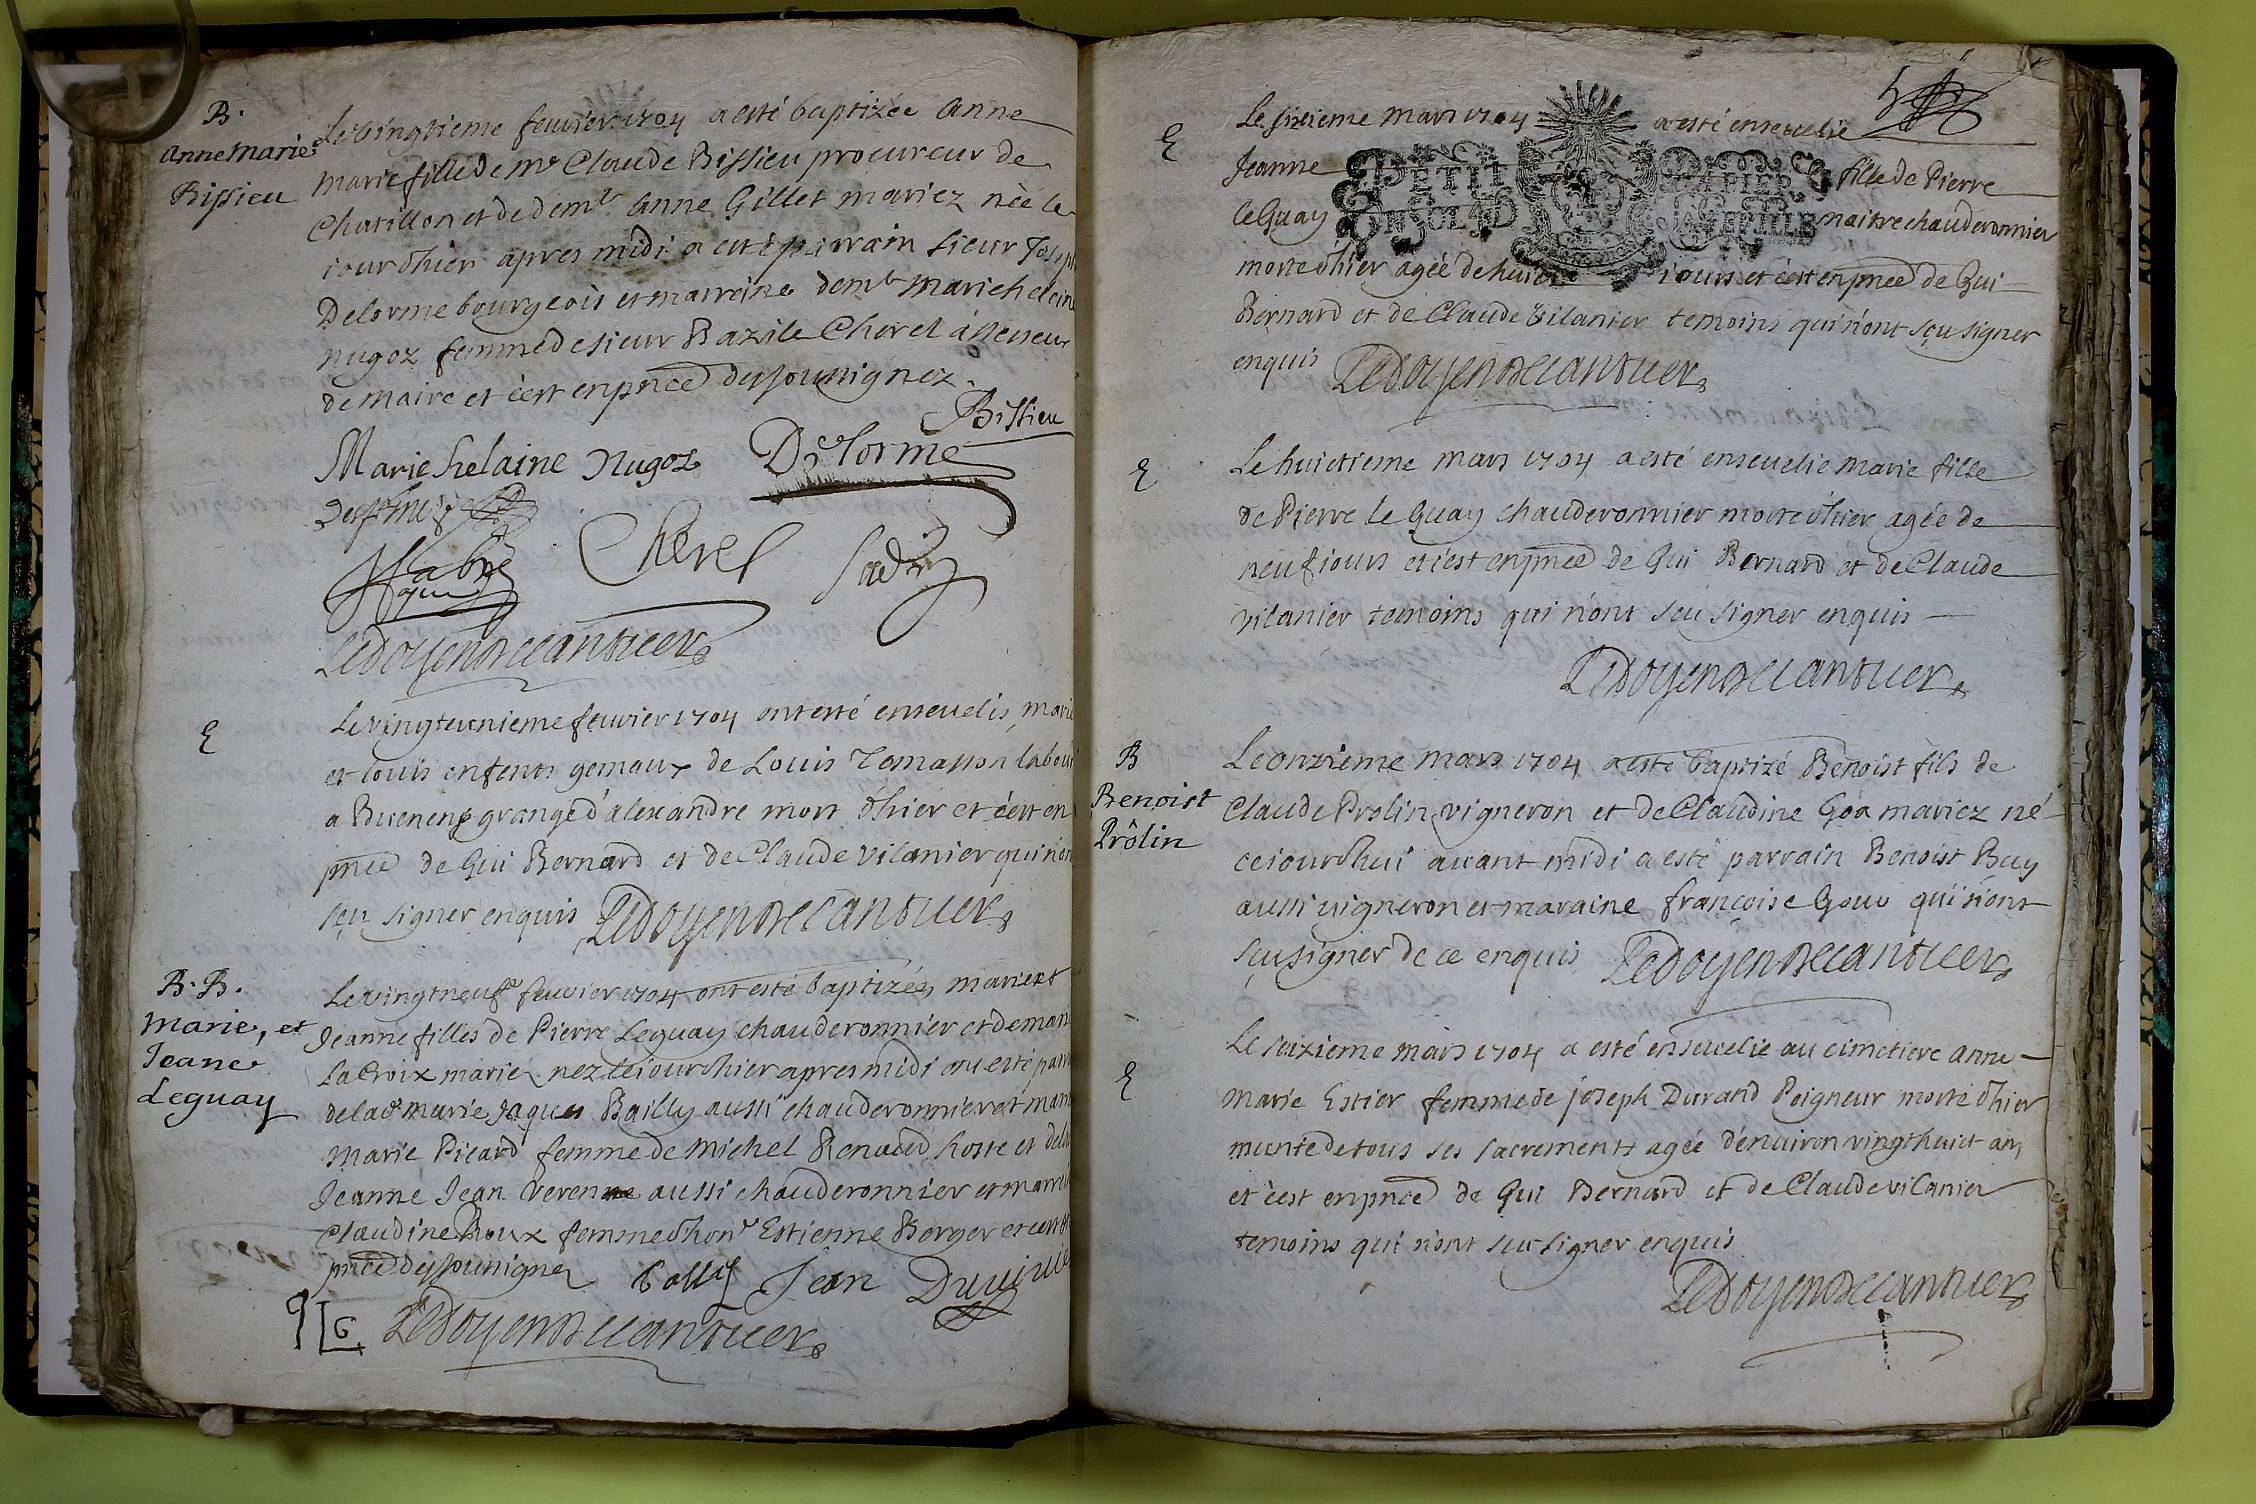 B.
Anne Marie
Bissieu
Le vingtieme feuvrier 1704 a esté baptizée Anne
Marie fille de Mr Claude Bissieu procureur de
Chatillon et de demlle Anne Gillet mariez née le
iour d'hier apres midi a esté parrain sieur Joseph
Delorme bourgeois et marreine demlle Marie heleine
nugoz femme de sieur Bazile Chorel assesseur
de maire et c'est en pnce des soussignez.
Bissieu
Marie helaine Nugoz Delorme
Chorel
Ledoyen Decantuer
E
Le vingteunieme feuvrier 1704 ont esté enseuelis, Marie
et Louis enfents gemaux de Louis Tomasson labour
a Buenens grange d'alexandre mort d'hier et c'est en
pnce de Gui Bernard et de Claude Vilanier qui n'on
sçu signer enquis Ledoyen Decantuer
B. B.
Marie, et
Jeane
Leguay
Le vingtneufe feuvrier 1704 ont esté baptizées, marie et
Jeanne filles de Pierre Leguay chauderonnier et de mari
La Croix mariez nez le iour d'hier apres midi ont esté parr
de lade marie Jaques Bailly aussi chauderonnier et marr
Marie Picard femme de Michel Renaud hoste et de la
Jeanne Jean Verenne aussi chauderonnier et marrei
Claudine Roux femme d'honr Estienne Berger et c'est en
pnce des soussignez Jean
LG Ledoyen Decantuer
E
Le sixieme Mars 1704 a esté enseuelie
Jeanne fille de Pierre
le Guay maitre chauderonnier
morte d'hier agée de huict iours et c'est en pnce de Gui
Bernard et de Claude Vilanier temoins qui n'ont sçu signer
enquis Ledoyen Decantuer
PETIT PAPIER
E
Le huictieme Mars 1704 a esté enseuelie Marie fille
de Pierre le Guay chauderonnier morte d'hier agée de
neuf iours et c'est en pnce de Gui Bernard et de Claude
Vilanier temoins qui n'ont sçu signer enquis
Ledoyen Decantuer
B
Benoist
Prôlin
Le onzieme Mars 1704 a esté baptizé Benoist fils de
Claude Prolin vigneron et de Claudine Goa mariez né
ceiourdhui auant midi a esté parrain Benoist Buy
aussi vigneron et maraine françoise Gouu qui n'ont
sçu signer de ce enquis Ledoyen Decantuer
E
Le seizieme Mars 1704 a esté enseuelie au cimetiere Anne
Marie Estier femme de joseph Durand Peigneur morte d'hier
munie de tous ses sacrements agée d'enuiron vingthuict ans
et c'est en pnce de Gui Bernard et de Claude Vilanier
temoins qui n'ont sçu signer enquis
Ledoyen Decantuer